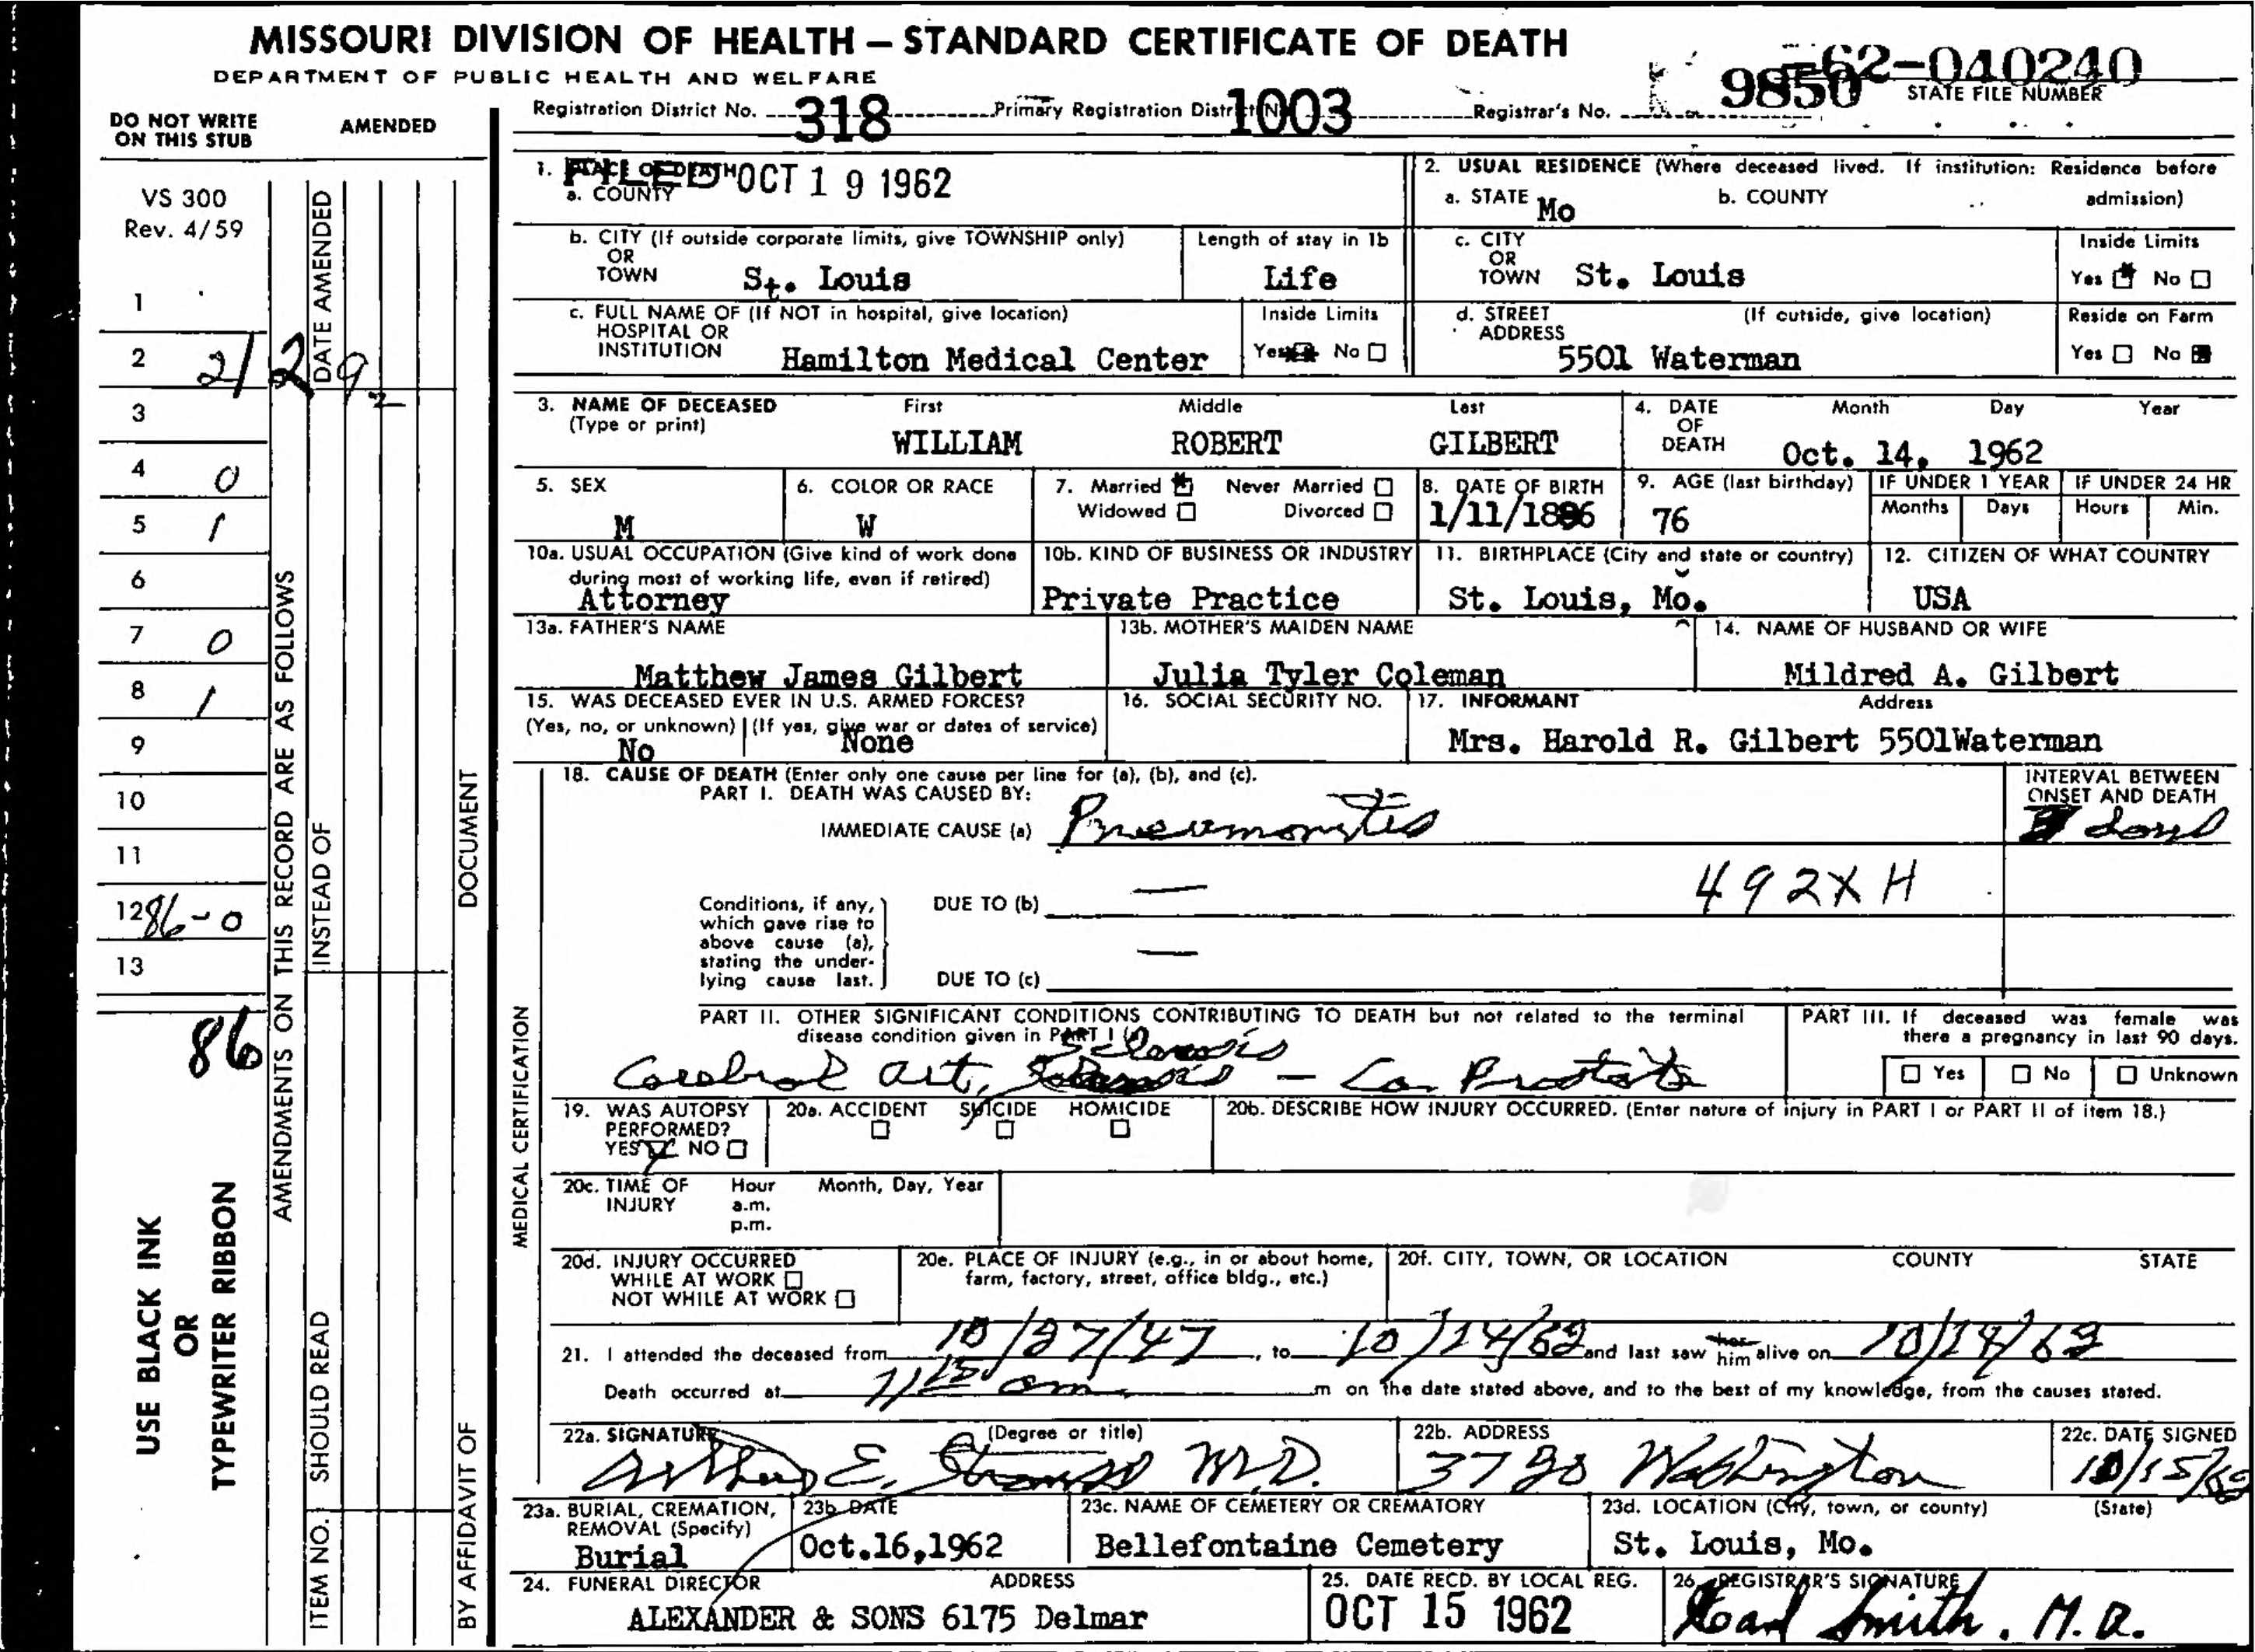 MISSOURI DIVISION OF HEALTH – STANDARD CERTIFICATE OF DEATH
DEPARTMENT OF PUBLIC HEALTH AND WELFARE
62-040240
9850
STATE FILE NUMBER
Registration District No. 318 Primary Registration District No. 1003 Registrar's No.
DO NOT WRITE ON THIS STUB
AMENDED
VS 300
Rev. 4/59
1
2 21
3
4 0
5 1
6
7 0
8 1
9
10
11
12 86-0
13
86
USE BLACK INK
OR
TYPEWRITER RIBBON
AMENDMENTS ON THIS RECORD ARE AS FOLLOWS
DATE AMENDED
INSTEAD OF
DOCUMENT
SHOULD READ
ITEM NO.
BY AFFIDAVIT OF
1. PLACE OF DEATH
FILED OCT 19 1962
a. COUNTY
2. USUAL RESIDENCE (Where deceased lived. If institution: Residence before admission)
a. STATE Mo b. COUNTY
b. CITY (If outside corporate limits, give TOWNSHIP only) OR TOWN St. Louis
Length of stay in 1b Life
c. CITY OR TOWN St. Louis
Inside Limits Yes No
c. FULL NAME OF (If NOT in hospital, give location) HOSPITAL OR INSTITUTION Hamilton Medical Center
Inside Limits Yes No
d. STREET ADDRESS (If outside, give location) 5501 Waterman
Reside on Farm Yes No
3. NAME OF DECEASED (Type or print) First Middle Last
WILLIAM ROBERT GILBERT
4. DATE OF DEATH Month Day Year
Oct. 14, 1962
5. SEX M
6. COLOR OR RACE W
7. Married Never Married Widowed Divorced
8. DATE OF BIRTH 1/11/1886
9. AGE (last birthday) 76
IF UNDER 1 YEAR Months Days
IF UNDER 24 HR Hours Min.
10a. USUAL OCCUPATION (Give kind of work done during most of working life, even if retired) Attorney
10b. KIND OF BUSINESS OR INDUSTRY Private Practice
11. BIRTHPLACE (City and state or country) St. Louis, Mo.
12. CITIZEN OF WHAT COUNTRY USA
13a. FATHER'S NAME Matthew James Gilbert
13b. MOTHER'S MAIDEN NAME Julia Tyler Coleman
14. NAME OF HUSBAND OR WIFE Mildred A. Gilbert
15. WAS DECEASED EVER IN U.S. ARMED FORCES?
(Yes, no, or unknown) (If yes, give war or dates of service)
No None
16. SOCIAL SECURITY NO.
17. INFORMANT Address
Mrs. Harold R. Gilbert 5501Waterman
MEDICAL CERTIFICATION
18. CAUSE OF DEATH (Enter only one cause per line for (a), (b), and (c).
PART I. DEATH WAS CAUSED BY:
IMMEDIATE CAUSE (a) Pneumonitis
INTERVAL BETWEEN ONSET AND DEATH
days
492X H
Conditions, if any, which gave rise to above cause (a), stating the underlying cause last.
DUE TO (b) —
DUE TO (c) —
PART II. OTHER SIGNIFICANT CONDITIONS CONTRIBUTING TO DEATH but not related to the terminal disease condition given in PART I (a)
Cerebral Art. Sclerosis – Ca. Prostate
PART III. If deceased was female was there a pregnancy in last 90 days.
Yes No Unknown
19. WAS AUTOPSY PERFORMED? YES NO
20a. ACCIDENT SUICIDE HOMICIDE
20b. DESCRIBE HOW INJURY OCCURRED. (Enter nature of injury in PART I or PART II of item 18.)
20c. TIME OF INJURY Hour a.m. p.m. Month, Day, Year
20d. INJURY OCCURRED WHILE AT WORK NOT WHILE AT WORK
20e. PLACE OF INJURY (e.g., in or about home, farm, factory, street, office bldg., etc.)
20f. CITY, TOWN, OR LOCATION COUNTY STATE
21. I attended the deceased from 10/27/47, to 10/14/62 and last saw her him alive on 10/14/62
Death occurred at 11:15 am m on the date stated above, and to the best of my knowledge, from the causes stated.
22a. SIGNATURE (Degree or title) Arthur E. Strauss M.D.
22b. ADDRESS 3720 Washington
22c. DATE SIGNED 10/15/62
23a. BURIAL, CREMATION, REMOVAL (Specify) Burial
23b. DATE Oct.16,1962
23c. NAME OF CEMETERY OR CREMATORY Bellefontaine Cemetery
23d. LOCATION (City, town, or county) (State) St. Louis, Mo.
24. FUNERAL DIRECTOR ADDRESS
ALEXANDER & SONS 6175 Delmar
25. DATE RECD. BY LOCAL REG. OCT 15 1962
26. REGISTRAR'S SIGNATURE Smith. M.D.